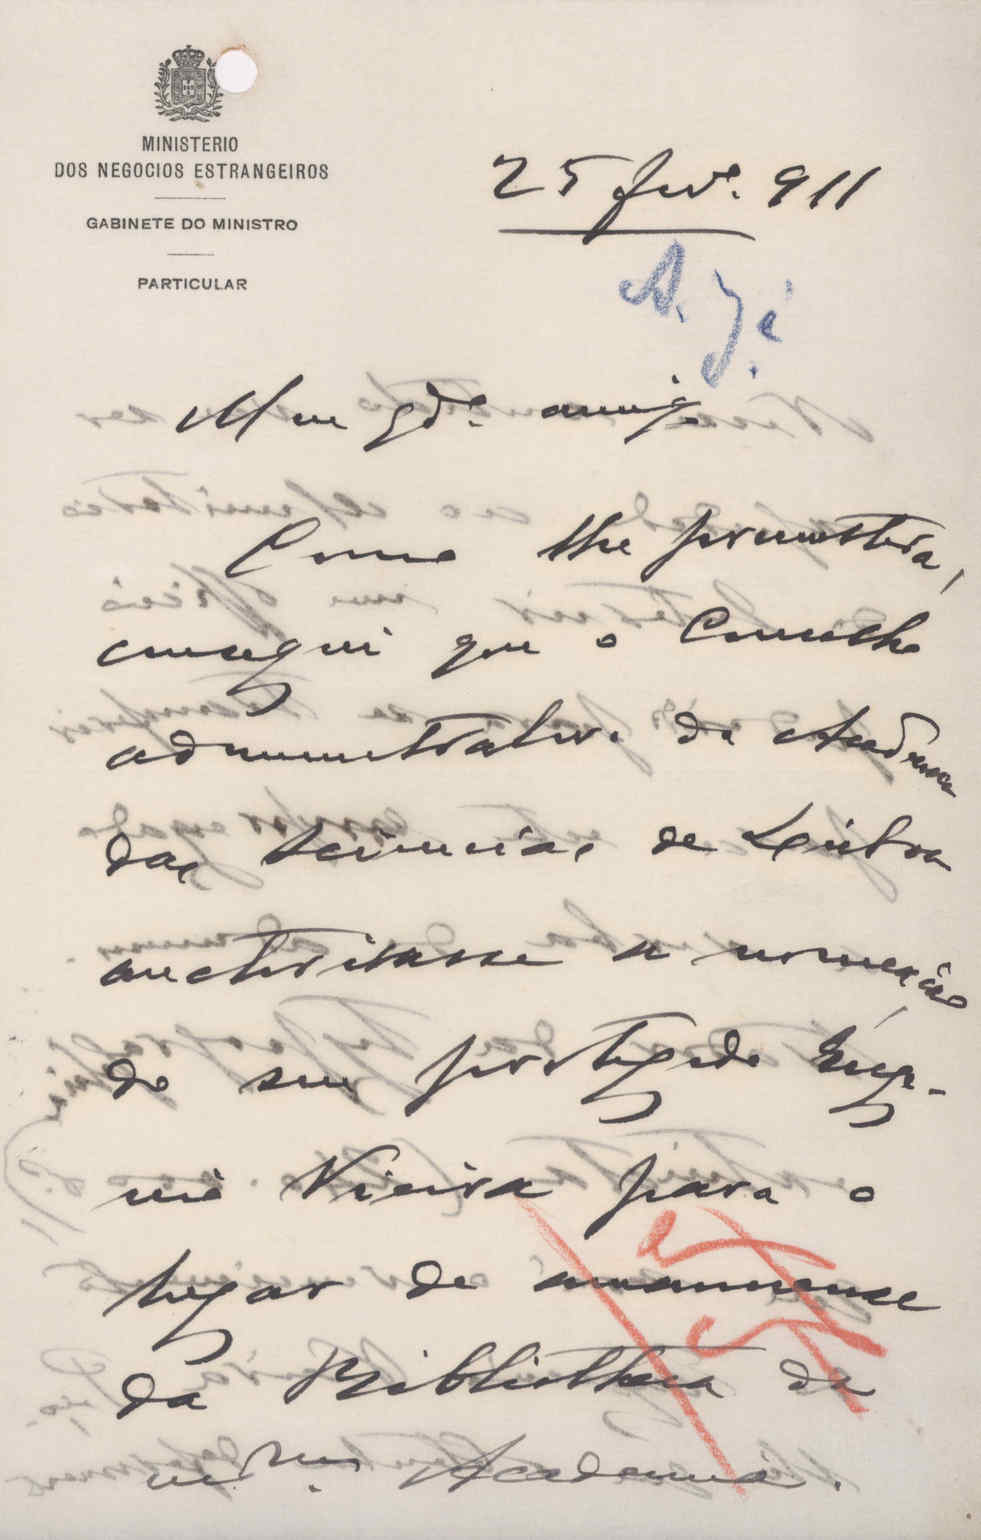 MINISTERIO
DOS NEGOCIOS ESTRANGEIROS
GABINETE DO MINISTRO
PARTICULAR
25 fevº. 911
Meu gdº. amigo
Como lhe promettera,
consegui que o Conselho
administrativo da Academia
das Sciencias de Lisboa
auctorisasse a nomeação
do seu protegido Euge-
nio Vieira para o
logar de amanuense
da Bibliotheca da
mesma Academia.